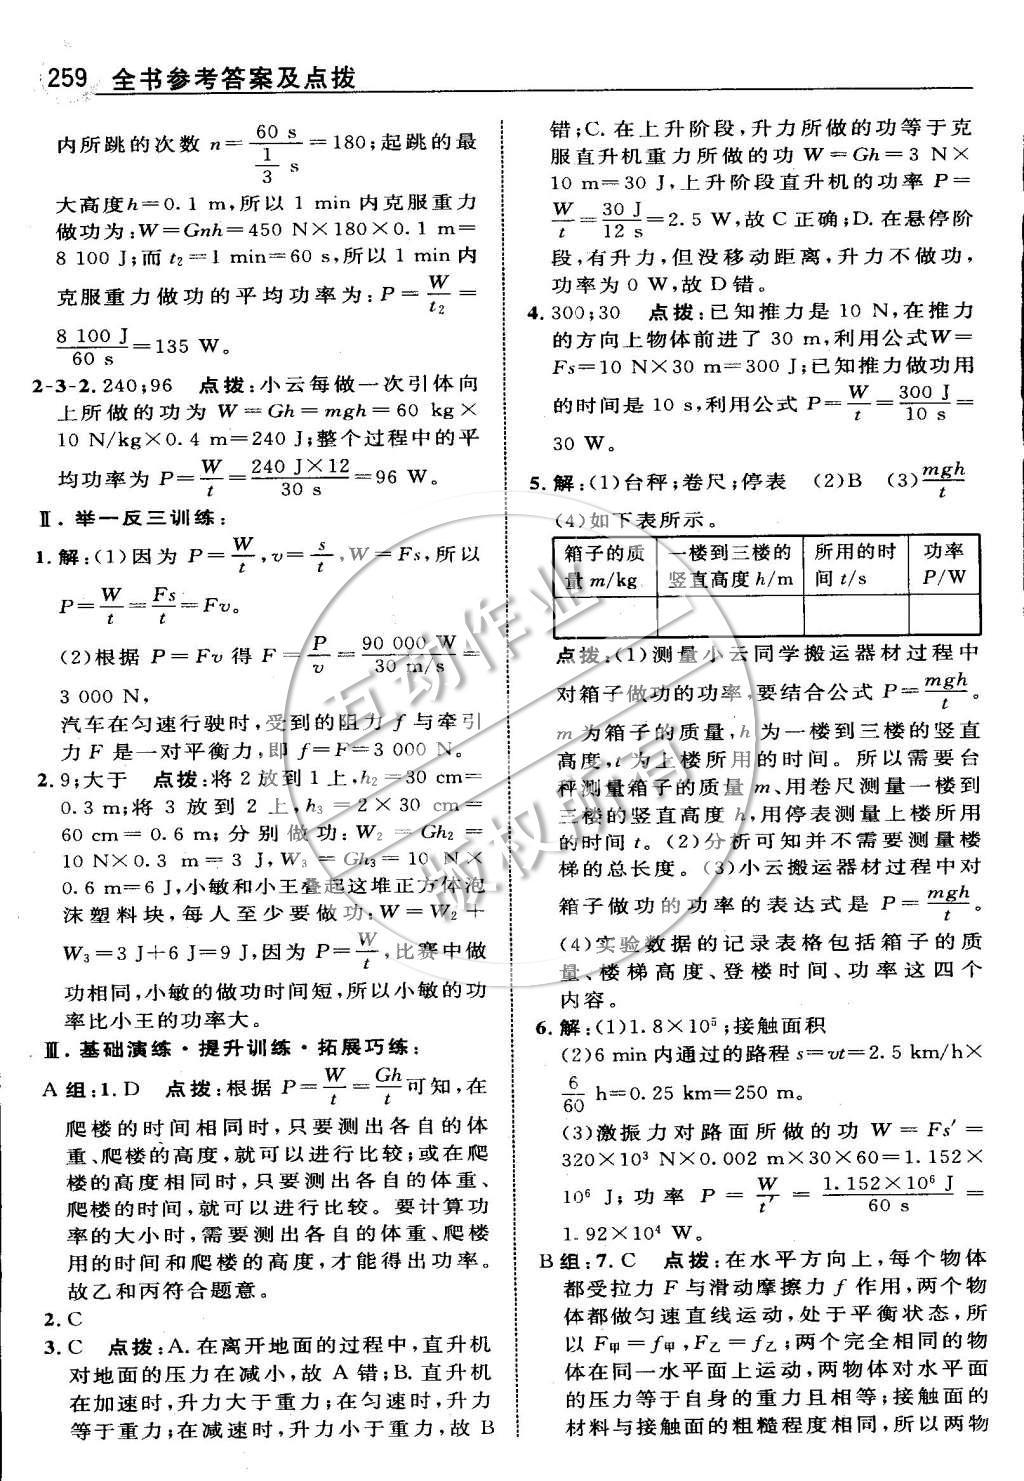 259 全书参考答案及点拨
内所跳的次数 n=60 s/(1/3 s)=180;起跳的最
大高度h=0.1 m,所以 1 min内克服重力
做功为:W=Gnh=450 N×180×0.1 m=
8 100 J;而 t₂=1 min=60 s,所以1 min内
克服重力做功的平均功率为:P=W/t₂=
8 100 J/60 s=135 W。
2-3-2. 240;96 点拨:小云每做一次引体向
上所做的功为 W=Gh=mgh=60 kg×
10 N/kg×0.4 m=240 J;整个过程中的平
均功率为 P=W/t=240 J×12/30 s=96 W。
Ⅱ. 举一反三训练:
1. 解:(1)因为 P=W/t,v=s/t,W=Fs,所以
P=W/t=Fs/t=Fv。
(2)根据 P=Fv 得 F=P/v=90 000 W/30 m/s=
3 000 N,
汽车在匀速行驶时,受到的阻力 f 与牵引
力 F 是一对平衡力,即 f=F=3 000 N。
2. 9;大于 点拨:将 2 放到 1 上,h₂=30 cm=
0.3 m;将 3 放到 2 上,h₃=2×30 cm=
60 cm=0.6 m;分别做功:W₂=Gh₂=
10 N×0.3 m=3 J,W₃=Gh₃=10 N×
0.6 m=6 J,小敏和小王叠起这堆正方体泡
沫塑料块,每人至少要做功:W=W₂+
W₃=3 J+6 J=9 J,因为 P=W/t,比赛中做
功相同,小敏的做功时间短,所以小敏的功
率比小王的功率大。
Ⅲ. 基础演练·提升训练·拓展巧练:
A 组:1. D 点拨:根据 P=W/t=Gh/t可知,在
爬楼的时间相同时,只要测出各自的体
重、爬楼的高度,就可以进行比较;或在爬
楼的高度相同时,只要测出各自的体重、
爬楼的时间,就可以进行比较。要计算功
率的大小时,需要测出各自的体重、爬楼
用的时间和爬楼的高度,才能得出功率。
故乙和丙符合题意。
2. C
3. C 点拨:A. 在离开地面的过程中,直升机
对地面的压力在减小,故 A 错;B. 直升机
在加速时,升力大于重力;在匀速时,升力
等于重力;在减速时,升力小于重力,故 B
错;C. 在上升阶段,升力所做的功等于克
服直升机重力所做的功 W=Gh=3 N×
10 m=30 J,上升阶段直升机的功率 P=
W/t=30 J/12 s=2.5 W,故 C 正确;D. 在悬停阶
段,有升力,但没移动距离,升力不做功,
功率为 0 W,故 D 错。
4. 300;30 点拨:已知推力是 10 N,在推力
的方向上物体前进了 30 m,利用公式W=
Fs=10 N×30 m=300 J;已知推力做功用
的时间是 10 s,利用公式 P=W/t=300 J/10 s=
30 W。
5. 解:(1)台秤;卷尺;停表 (2)B (3)mgh/t
(4)如下表所示。
箱子的质 一楼到三楼的 所用的时 功率
量 m/kg 竖直高度 h/m 间 t/s P/W
点拨:(1)测量小云同学搬运器材过程中
对箱子做功的功率,要结合公式 P=mgh/t。
m 为箱子的质量,h 为一楼到三楼的竖直
高度,t 为上楼所用的时间。所以需要台
秤测量箱子的质量 m、用卷尺测量一楼到
三楼的竖直高度 h,用停表测量上楼所用
的时间 t。(2)分析可知并不需要测量楼
梯的总长度。(3)小云搬运器材过程中对
箱子做功的功率的表达式是 P=mgh/t。
(4)实验数据的记录表格包括箱子的质
量、楼梯高度、登楼时间、功率这四个
内容。
6. 解:(1)1.8×10⁵;接触面积
(2)6 min内通过的路程 s=vt=2.5 km/h×
6/60 h=0.25 km=250 m。
(3)激振力对路面所做的功 W=Fs′=
320×10³ N×0.002 m×30×60=1.152×
10⁶ J;功率 P=W/t′=1.152×10⁶ J/60 s=
1.92×10⁴ W。
B 组:7. C 点拨:在水平方向上,每个物体
都受拉力 F 与滑动摩擦力 f 作用,两个物
体都做匀速直线运动,处于平衡状态,所
以 F甲=f甲,F乙=f乙;两个完全相同的物
体在同一水平面上运动,两物体对水平面
的压力等于自身的重力且相等;接触面的
材料与接触面的粗糙程度相同,所以两物
互动作业
版权所有